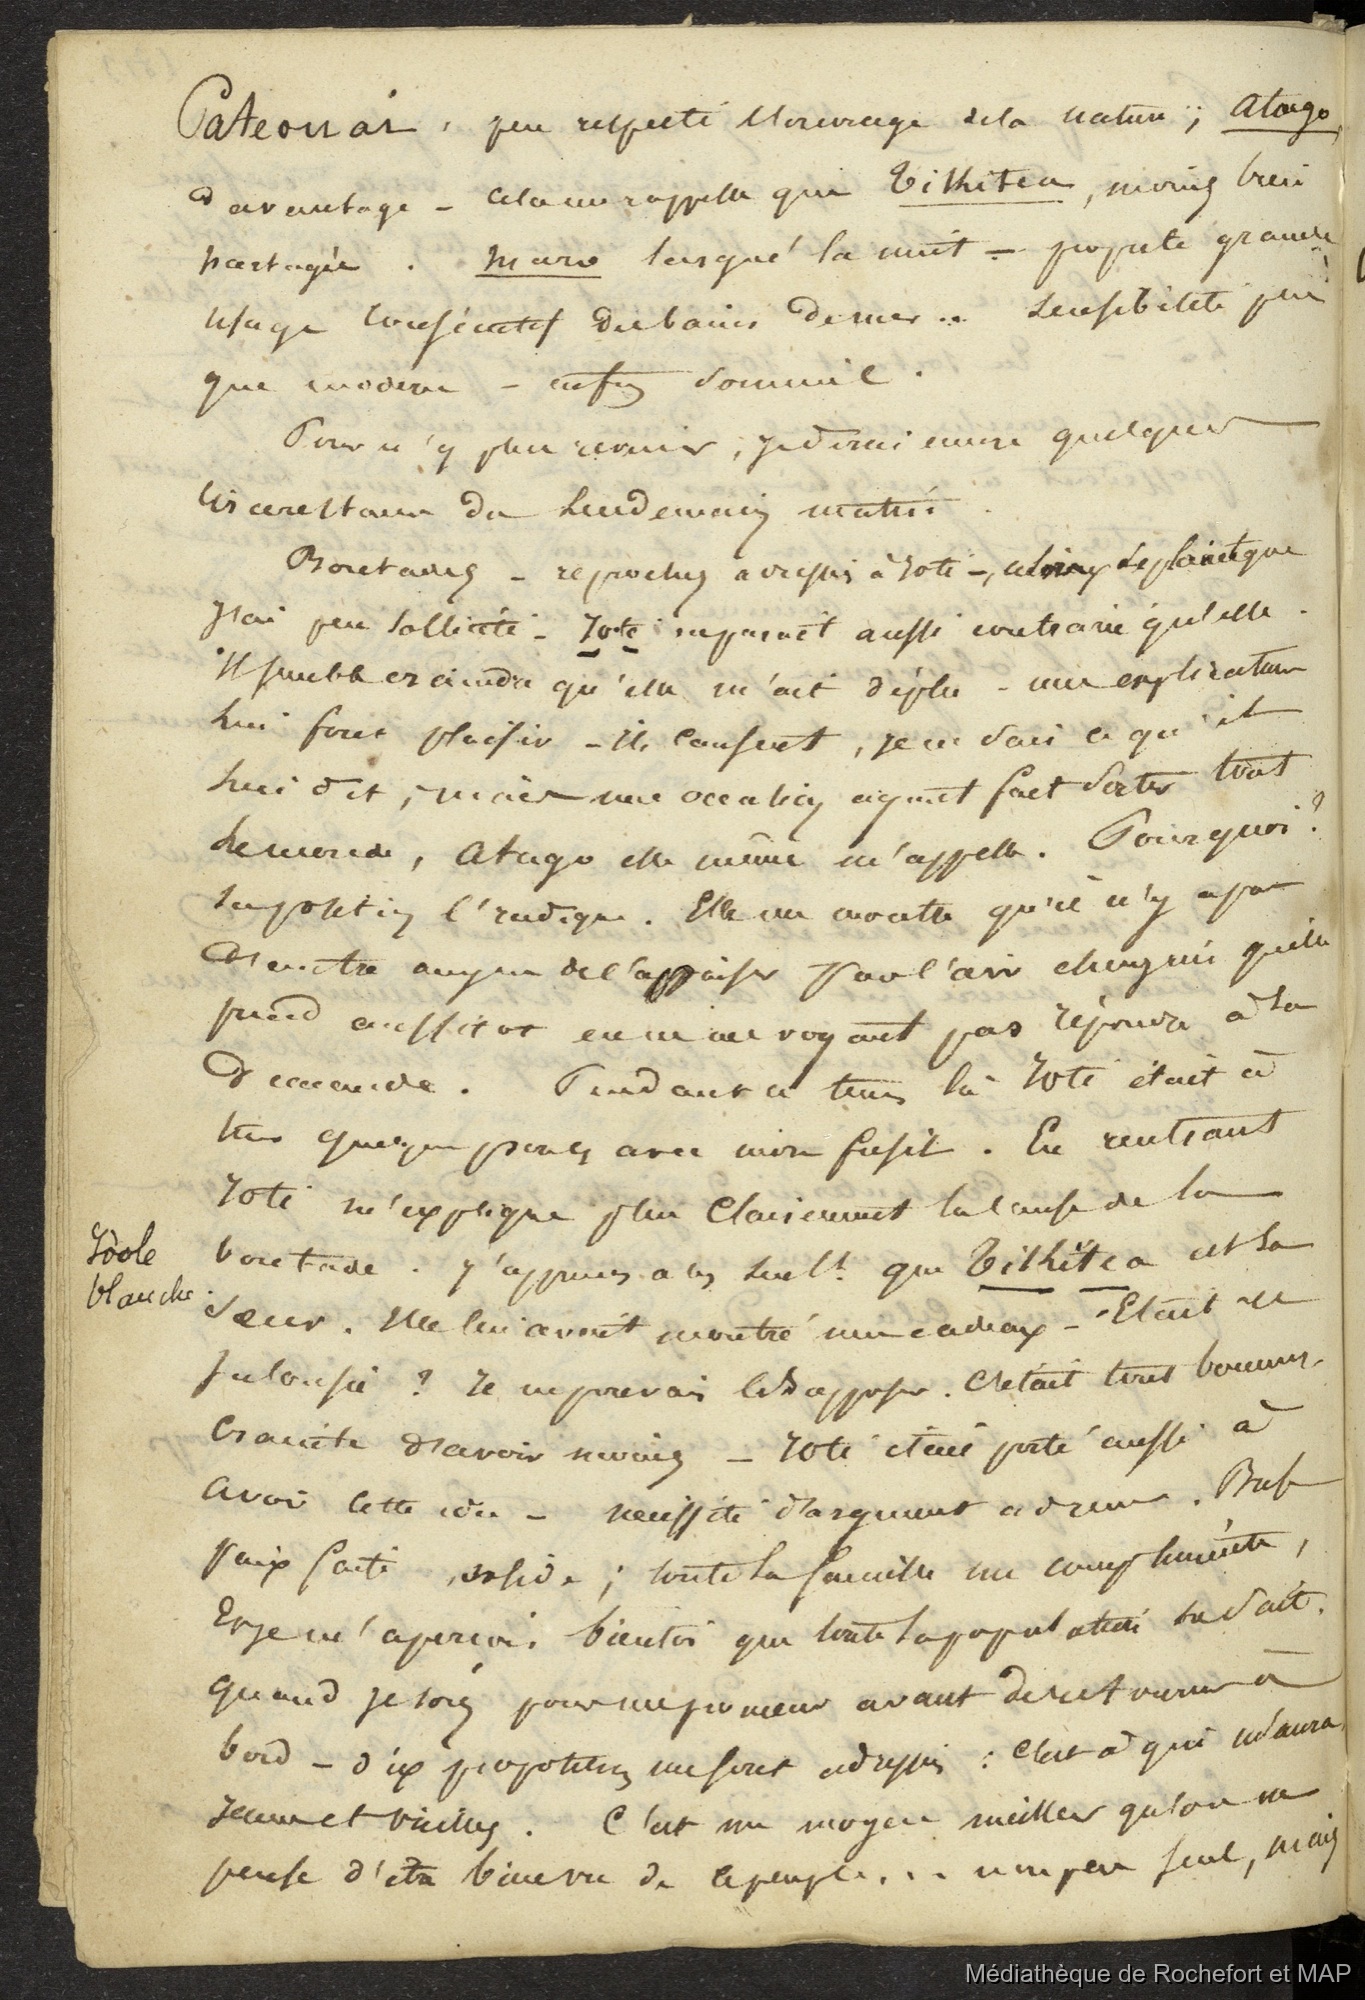 Pateouai, peu respecté l'ouvrage de la nature; Atago,
davantage – cela me rappelle que Tithitea, moins bien
partagée. maro lorsque la nuit – propreté grande
usage consécutif des bains de mer .. sensibilité plus
que modérée – enfin sommeil.
Pour n'y plus revenir, je dirai encore quelques
circonstances du lendemain matin.
Boutades – reproches adressés à Yoté –, celui-ci se plaint que
j'ai peu sollicité – Yoté me paraît aussi contrarié qu'elle.
Il semble craindre qu'elle m'ait déplu – une explication
lui fait plaisir – Ils causent, je ne sais ce qu'il
lui dit, mais une occasion ayant fait sortir tout
le monde, Atago elle même m'appelle. Pourquoi?
sa position l'indique. Elle me montre qu'il n'y a pas
d'autre moyen de l'apaiser par l'air chagrin qu'elle
prend aussitot en ne me voyant pas répondre à sa
demande. Pendant ce tems là Yoté était à
tuer quelques poules avec mon fusil. En rentrant
Yoté m'explique plus clairement la cause de la
boutade. j'apprends alors seult. que Tithitea est sa
sœur. Elle lui avait montré mes cadeaux – Etait-ce
jalousie? Je ne pouvais le supposer. C'était tout bonnemt.
crainte d'avoir moins – Yoté était porté aussi à
avoir cette idée – nécessité d'argument à d Bref
paix faite, solide; toute la famille me complimente,
Et je m'aperçois bientôt que toute la population le sait.
quand je sors pour me promener avant de retourner à
bord – dix propositions me sont adressées : C'est à qui m'aura,
jeunes et vieilles. C'est un moyen meilleur qu'on ne
pense d'être bien vu de ce peuple... un peu seul, mais
Idole
blanche
Médiathèque de Rochefort et MAP